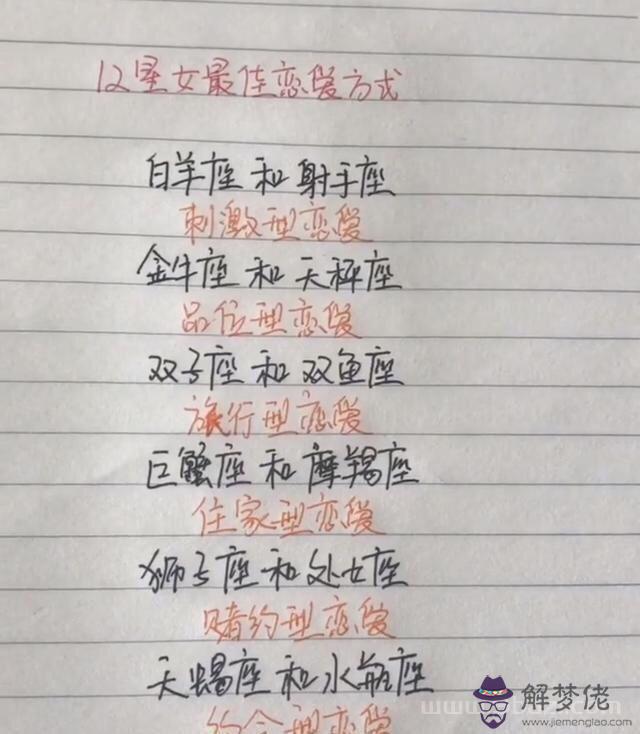 12星女最佳恋爱方式
白羊座和射手座
刺激型恋爱
金牛座和天秤座
品位型恋爱
双子座和双鱼座
旅行型恋爱
巨蟹座和摩羯座
住家型恋爱
狮子座和处女座
赌约型恋爱
天蝎座和水瓶座
约会型恋爱
解梦佬
www.jiemenglao.com/